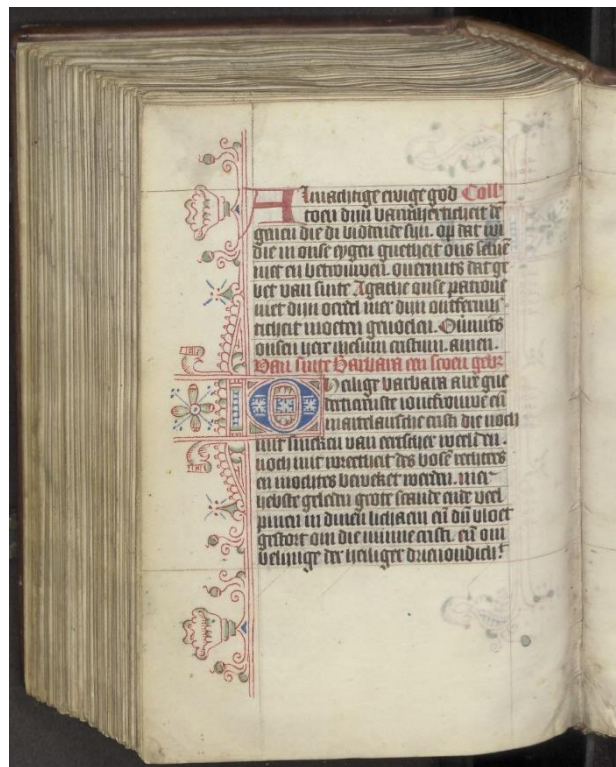 Almachtige ewige god Coll'
toen dijn barmherticheit dē
genen die di biddende sijn. op dat wi
die in onse eygen guetheit ons seluē
niet en betrouwen. ouermits dat ge
bet van sinte Agathe onse patrone
niet dijn ordel mer dijn ontfermher
ticheit moeten geuoelen. Ouermits
onsen here ihesum cristum. amen.
Van sinte Barbara een scoen gebet
O Heilige barbara alre glo
rierenste ioncfrouwe eñ
martelaersche cristi die noch
mit smeken van eertscher weelden.
noch mit wreetheit des bosen rechters
en mochtes beweket werden. mer
hebste geleden grote scande ende veel
pinen in dinen lichaem eñ dijn bloet
gestort om die minne cristi. eñ om
belijinge der heiliger drieuoudich